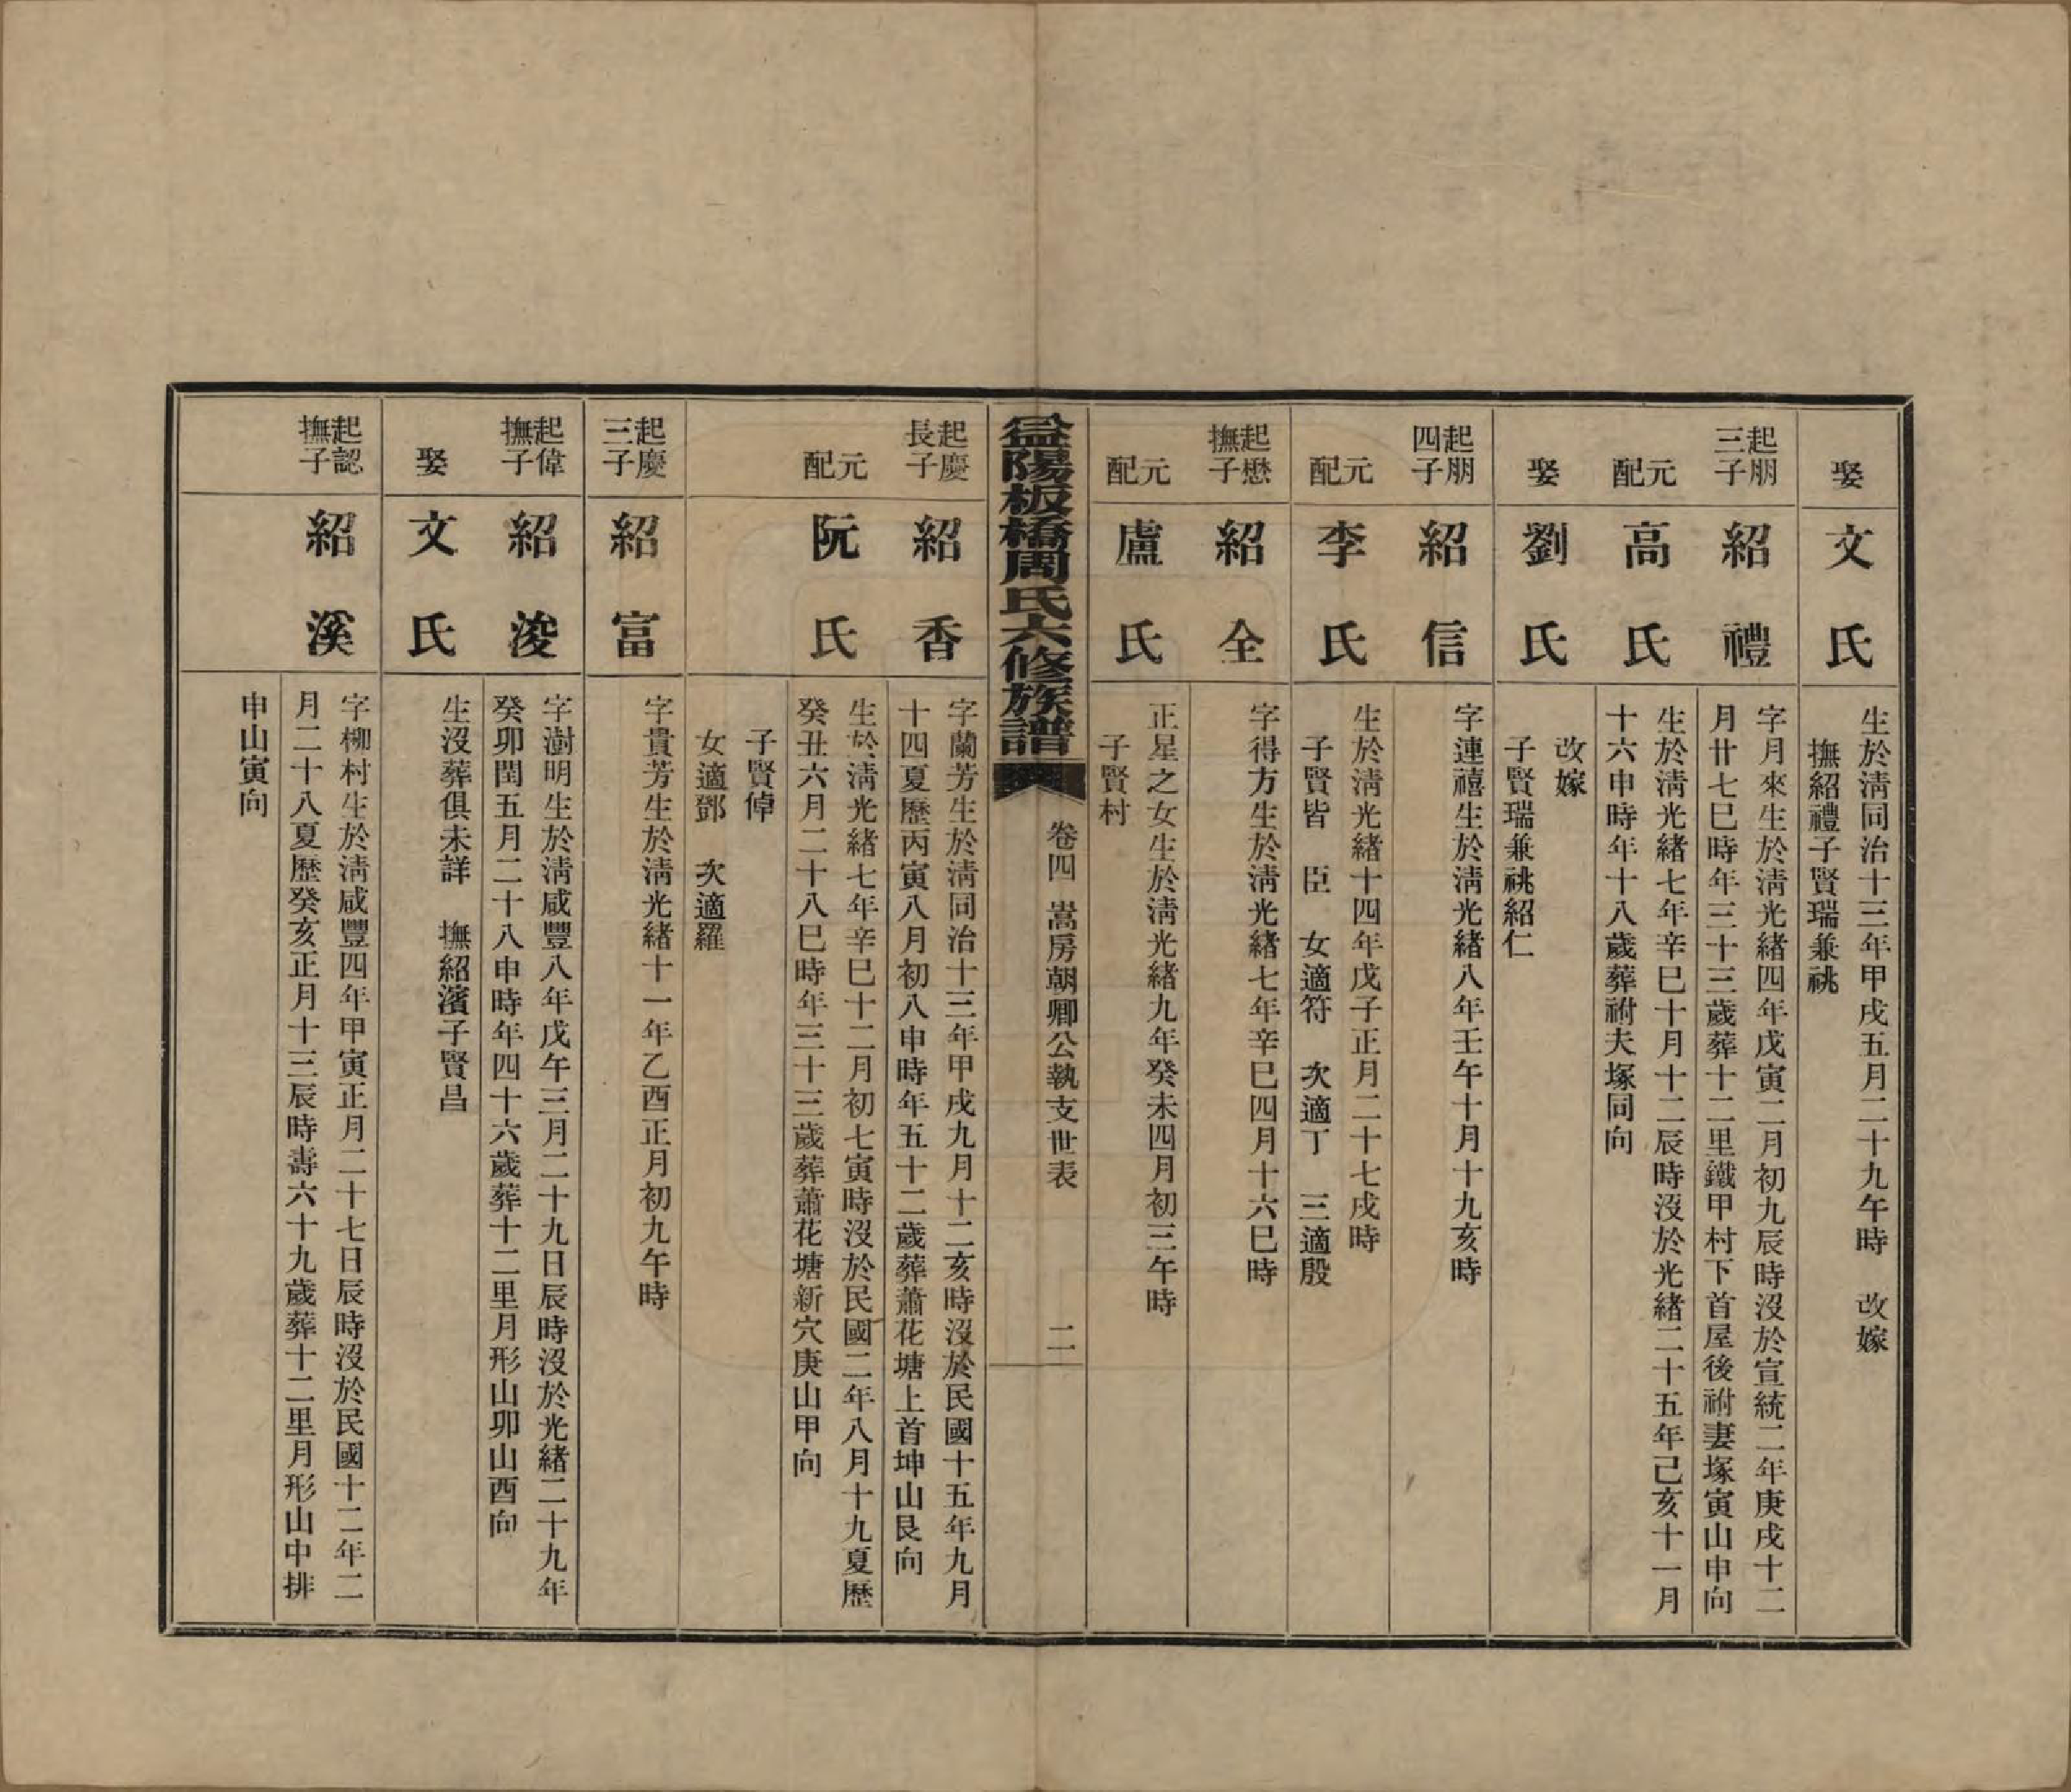 娶
文氏
生於淸同治十三年甲戌五月二十九午時　改嫁
撫紹禮子賢瑞兼祧
起朋
三子
紹禮
字月來生於淸光緒四年戊寅二月初九辰時沒於宣統二年庚戌十二
月廿七巳時年三十三歲葬十二里鐵甲村下首屋後祔妻塚寅山申向
元配
高氏
生於淸光緒七年辛巳十月十二辰時沒於光緒二十五年己亥十一月
十六申時年十八歲葬祔夫塚同向
娶
劉氏
改嫁
子賢瑞兼祧紹仁
起朋
四子
紹信
字連禧生於淸光緒八年壬午十月十九亥時
元配
李氏
生於淸光緒十四年戊子正月二十七戌時
子賢皆　臣　女適符　次適丁　三適殷
起懋
撫子
紹全
字得方生於淸光緒七年辛巳四月十六巳時
元配
盧氏
正星之女生於淸光緒九年癸未四月初三午時
子賢村
益陽板橋周氏六修族譜
卷四　嵩房朝卿公執支世表　二
起慶
長子
紹香
字蘭芳生於淸同治十三年甲戌九月十二亥時沒於民國十五年九月
十四夏歷丙寅八月初八申時年五十二歲葬蕭花塘上首坤山艮向
元配
阮氏
生於淸光緒七年辛巳十二月初七寅時沒於民國二年八月十九夏歷
癸丑六月二十八巳時年三十三歲葬蕭花塘新穴庚山甲向
子賢倬
女適鄧　次適羅
起慶
三子
紹富
字貴芳生於淸光緒十一年乙酉正月初九午時
起偉
撫子
紹浚
字澍明生於淸咸豐八年戊午三月二十九日辰時沒於光緒二十九年
癸卯閏五月二十八申時年四十六歲葬十二里月形山卯山酉向
娶
文氏
生沒葬俱未詳　撫紹濱子賢昌
起認
撫子
紹溪
字柳村生於淸咸豐四年甲寅正月二十七日辰時沒於民國十二年二
月二十八夏歷癸亥正月十三辰時壽六十九歲葬十二里月形山中排
申山寅向